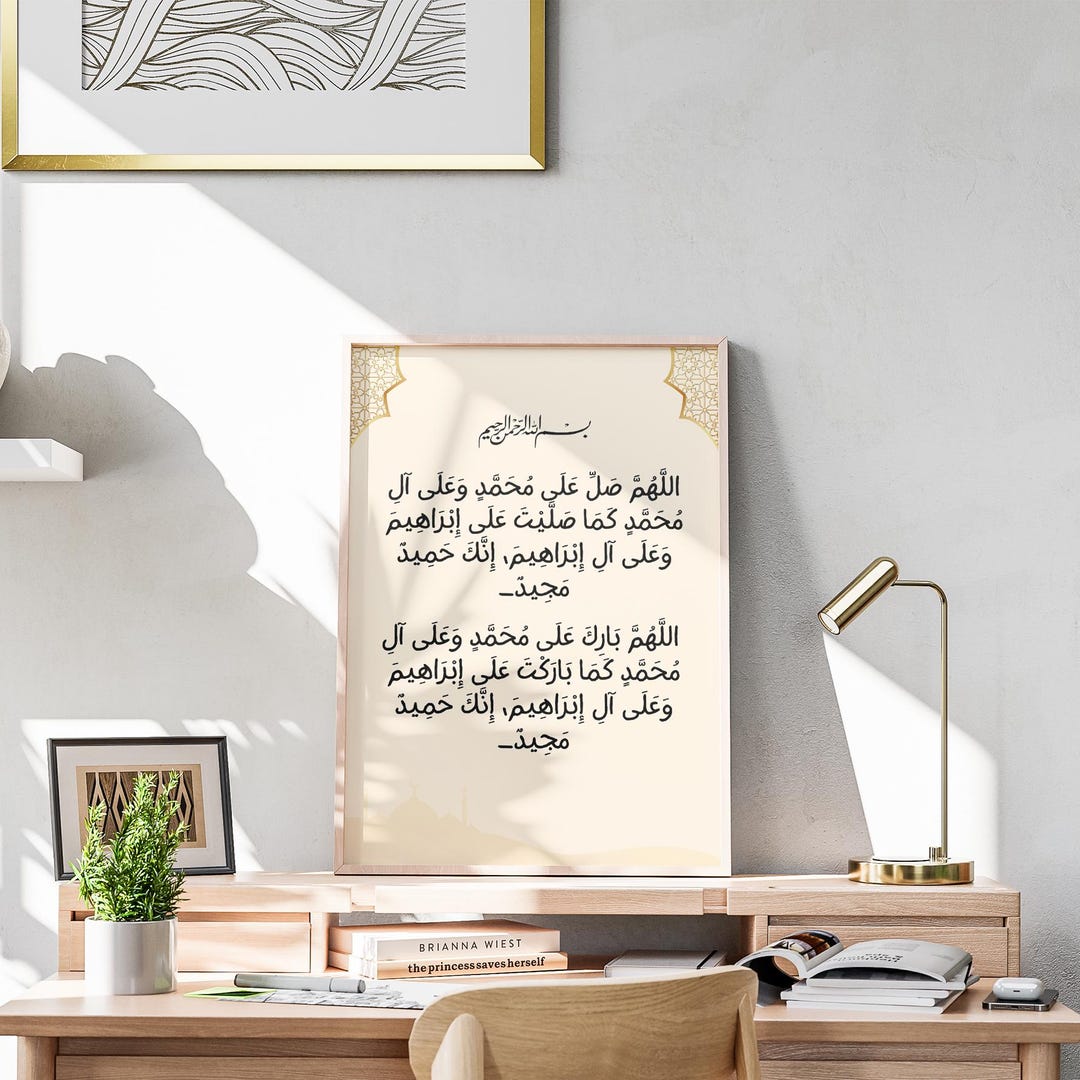 بسم الله الرحمن الرحيم
اللَّهُمَّ صَلِّ عَلَى مُحَمَّدٍ وَعَلَى آلِ
مُحَمَّدٍ كَمَا صَلَّيْتَ عَلَى إِبْرَاهِيمَ
وَعَلَى آلِ إِبْرَاهِيمَ، إِنَّكَ حَمِيدٌ
مَجِيدٌ
اللَّهُمَّ بَارِكَ عَلَى مُحَمَّدٍ وَعَلَى آلِ
مُحَمَّدٍ كَمَا بَارَكْتَ عَلَى إِبْرَاهِيمَ
وَعَلَى آلِ إِبْرَاهِيمَ، إِنَّكَ حَمِيدٌ
مَجِيدٌ
BRIANNA WIEST
the princess saves herself